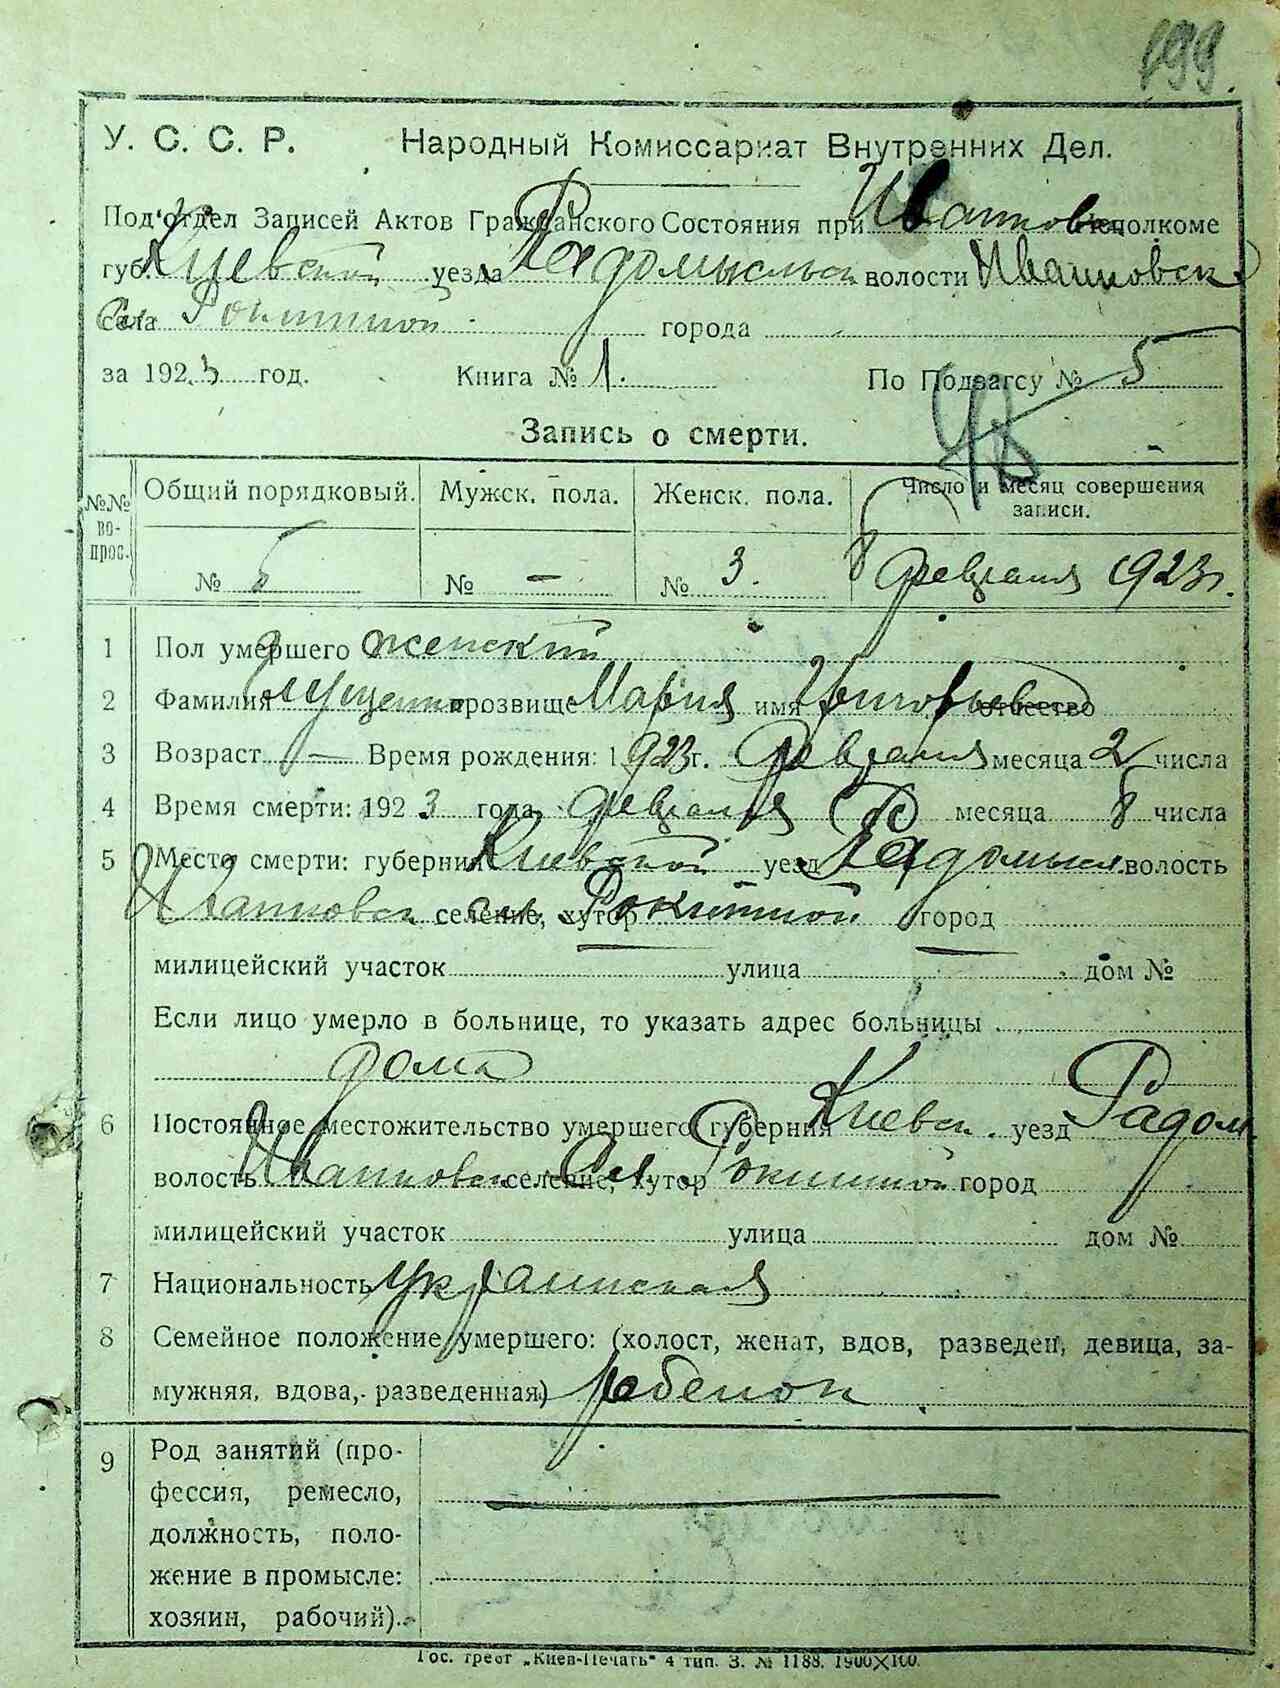 199.
У. С. С. Р. Народный Комиссариат Внутренних Дел.
Под'отдел Записей Актов Гражданского Состояния при Иванков. Исполкоме
губ. Киевской уезда Радомысльск волости Иванковск
села Рокитной города
за 1923 год. Книга № 1. По Подзагсу № 5
48
Запись о смерти.
№№ вопрос. Общий порядковый. Мужск. пола. Женск. пола. Число и месяц совершения записи.
№ 5 № — № 3. 8 февраля 1923 г.
1 Пол умершего женский
2 Фамилия прозвище Мария имя Григорьевна отчество
3 Возраст — Время рождения: 1923 г. февраля месяца 2 числа
4 Время смерти: 1923 года февраля месяца 8 числа
5 Место смерти: губерния Киевской уезд Радомысл. волость
Иванковск селение, хутор Рокитной город
милицейский участок улица дом №
Если лицо умерло в больнице, то указать адрес больницы
дома
6 Постоянное местожительство умершего губерния Киевск. уезд Радом.
волость Иванковск селение, хутор Рокитной город
милицейский участок улица дом №
7 Национальность украинская
8 Семейное положение умершего: (холост, женат, вдов, разведен, девица, за-
мужняя, вдова, разведенная) ребенок
9 Род занятий (про-
фессия, ремесло,
должность, поло-
жение в промысле:
хозяин, рабочий).
Гос. трест „Киев-Печать" 4 тип. З. № 1188. 1900×100.